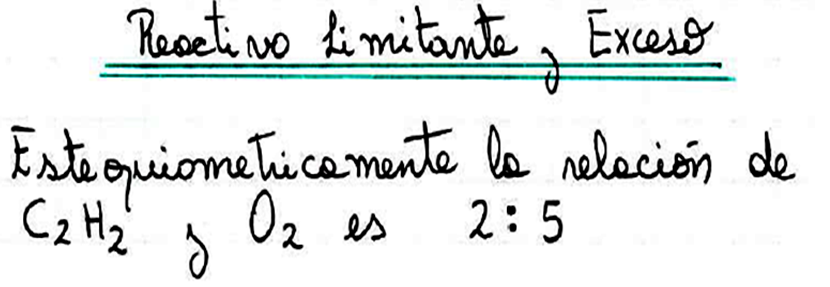 Reactivo Limitante y Exceso
Estequiometricamente la relación de
C₂H₂ y O₂ es 2:5